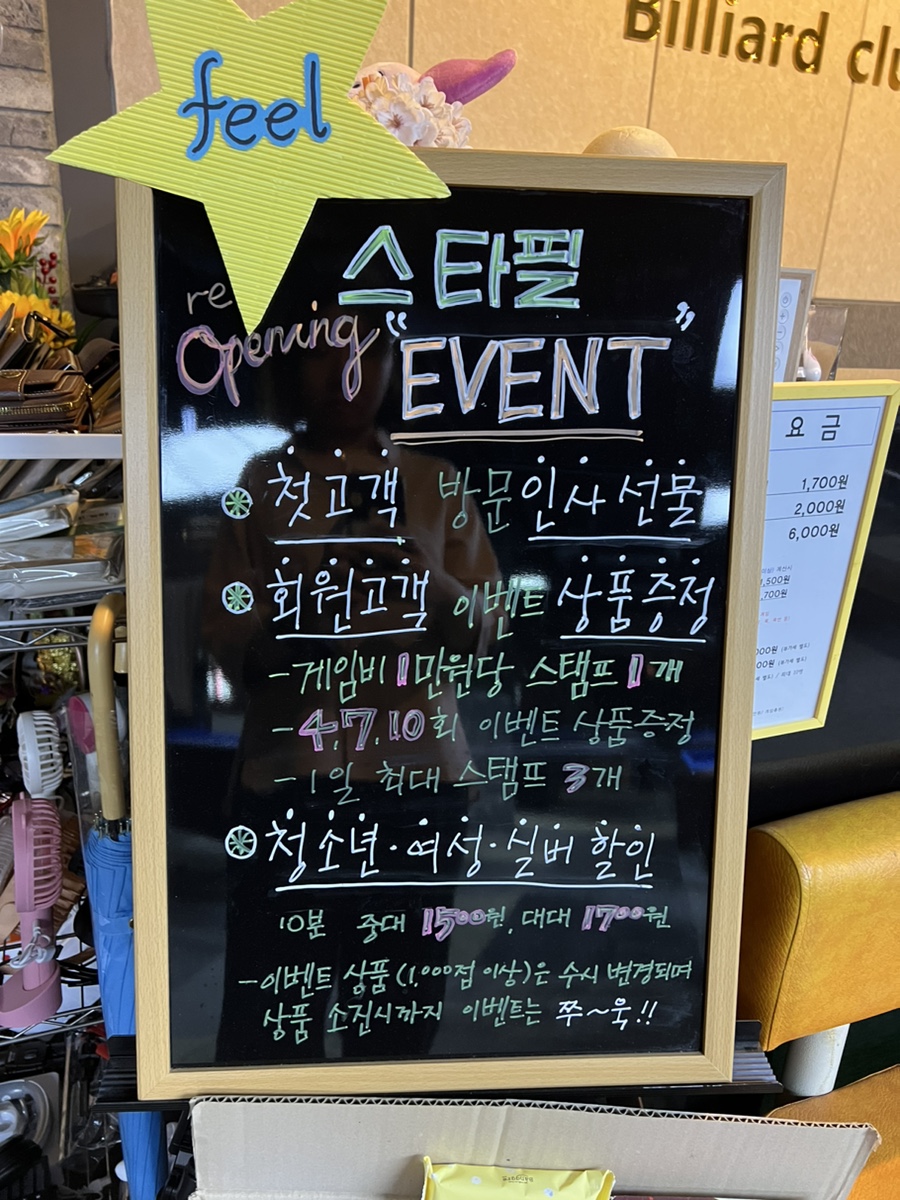 Billiard clu
feel
스타필
re
Opening
"EVENT"
첫고객 방문 인사 선물
회원고객 이벤트 상품증정
- 게임비 1만원당 스탬프 1개
- 4.7.10회 이벤트 상품증정
- 1일 최대 스탬프 3개
청소년·여성·실버 할인
10분 중대 1500원, 대대 1700원
- 이벤트 상품(1,000접 이상)은 수시 변경되며
상품 소진시까지 이벤트는 쭈~욱!!
요 금
1,700원
2,000원
6,000원
,500원
,700원